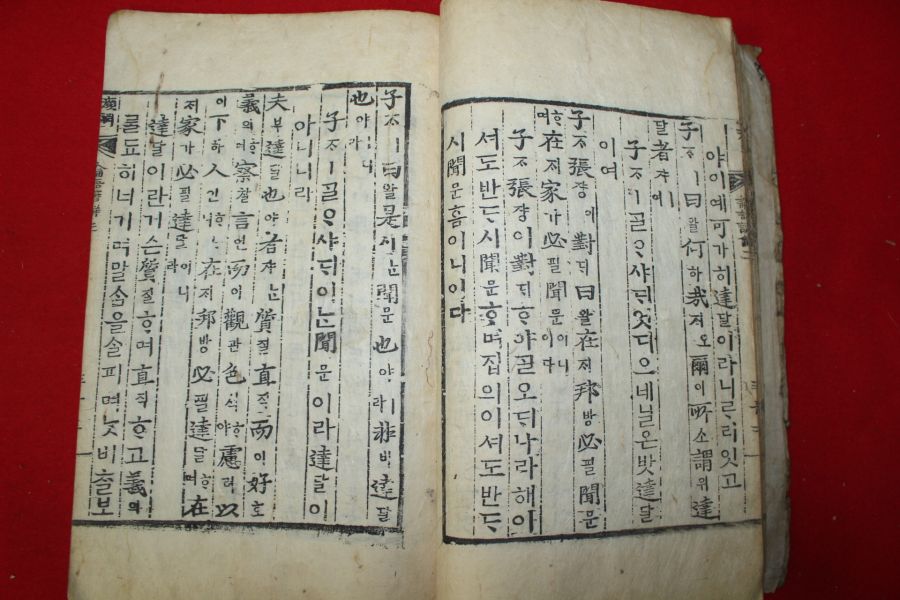 야이예可가히達달이라니ᄅᆞ리잇고
子ᄌᆞㅣ曰왈何하哉ᄌᆡ오爾이所소謂위達
달者쟈여
子ᄌᆞㅣᄀᆞᆯᄋᆞ샤ᄃᆡ엇디오네닐온밧達달
이여
子ᄌᆞ張쟝이對ᄃᆡ曰왈在ᄌᆡ邦방必필聞문
ᄒᆞ며在ᄌᆡ家가必필聞문이니이다
子ᄌᆞ張쟝이對ᄃᆡᄒᆞ야ᄀᆞᆯ오ᄃᆡ나라해이
셔도반ᄃᆞ시聞문ᄒᆞ며집의이셔도반ᄃᆞ
시聞문홈이니이다
子ᄌᆞㅣ曰왈是시ᄂᆞᆫ聞문也야ㅣ라非비達달
也야ㅣ니라
子ᄌᆞㅣᄀᆞᆯᄋᆞ샤ᄃᆡ이ᄂᆞᆫ聞문이라達달이
아니니라
夫부達달也야者쟈ᄂᆞᆫ質질直직而이好호
義의ᄒᆞ며察찰言언而이觀관色ᄉᆡᆨᄒᆞ야慮려以
이下하人인ᄒᆞᄂᆞ니在ᄌᆡ邦방必필達달ᄒᆞ며在
ᄌᆡ家가必필達달이니라
達달이란거슨質질ᄒᆞ며直직ᄒᆞ고義의
ᄅᆞᆯ됴히너기며말ᄉᆞᆷ을ᄉᆞᆯ피며ᄂᆞᆺ비ᄎᆞᆯ보